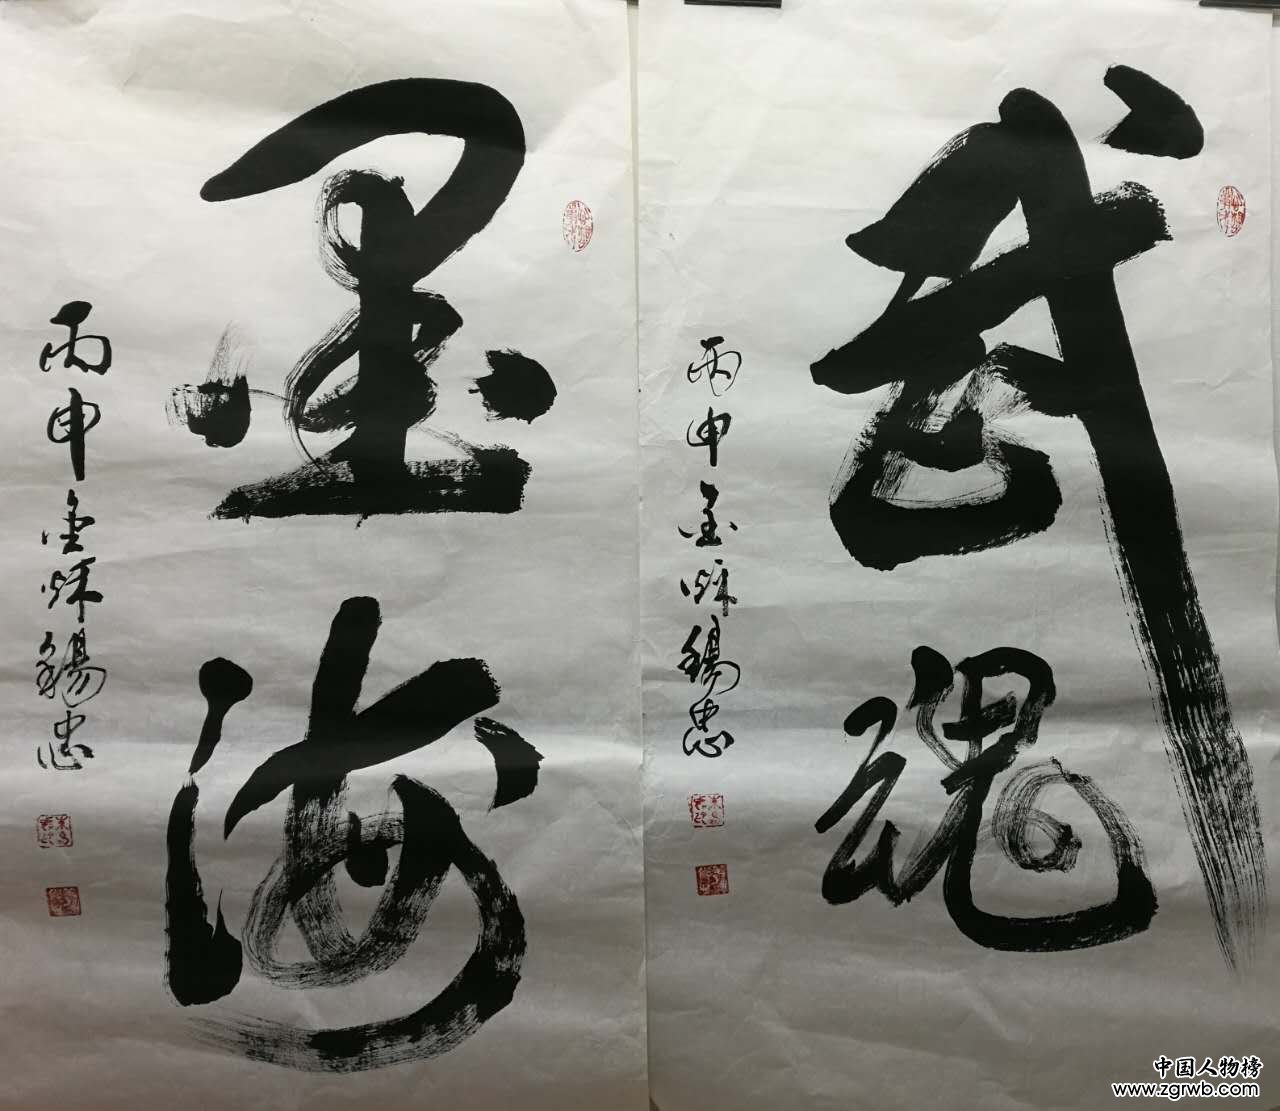 武魂
丙申金秋錫忠
墨海
丙申金秋錫忠
中国人物榜
www.zgrwb.com